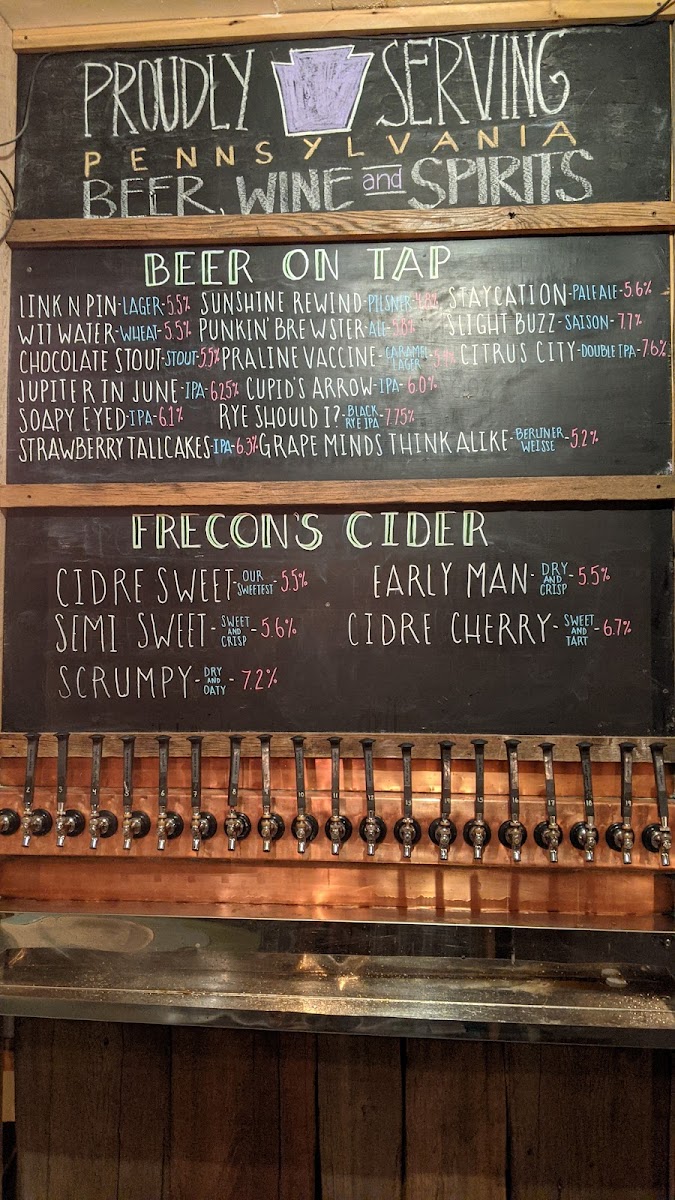 PROUDLY SERVING
PENNSYLVANIA
BEER, WINE and SPIRITS
BEER ON TAP
LINK N PIN-LAGER-5.5% SUNSHINE REWIND-PILSNER-4.8% STAYCATION-PALE ALE-5.6%
WIT WATER-WHEAT-5.5% PUNKIN' BREWSTER-ALE- SLIGHT BUZZ-SAISON-7.7%
CHOCOLATE STOUT-STOUT-5.5% PRALINE VACCINE-CARAMEL LAGER- CITRUS CITY-DOUBLE IPA-7.6%
JUPITER IN JUNE-IPA-6.25% CUPID'S ARROW-IPA-6.0%
SOAPY EYED-IPA-6.1% RYE SHOULD I?-BLACK RYE IPA-7.75%
STRAWBERRY TALLCAKES-IPA-6.3% GRAPE MINDS THINK ALIKE-BERLINER WEISSE-5.2%
FRECON'S CIDER
CIDRE SWEET-OUR SWEETEST-5.5% EARLY MAN-DRY AND CRISP-5.5%
SEMI SWEET-SWEET AND CRISP-5.6% CIDRE CHERRY-SWEET AND TART-6.7%
SCRUMPY-DRY AND OATY-7.2%